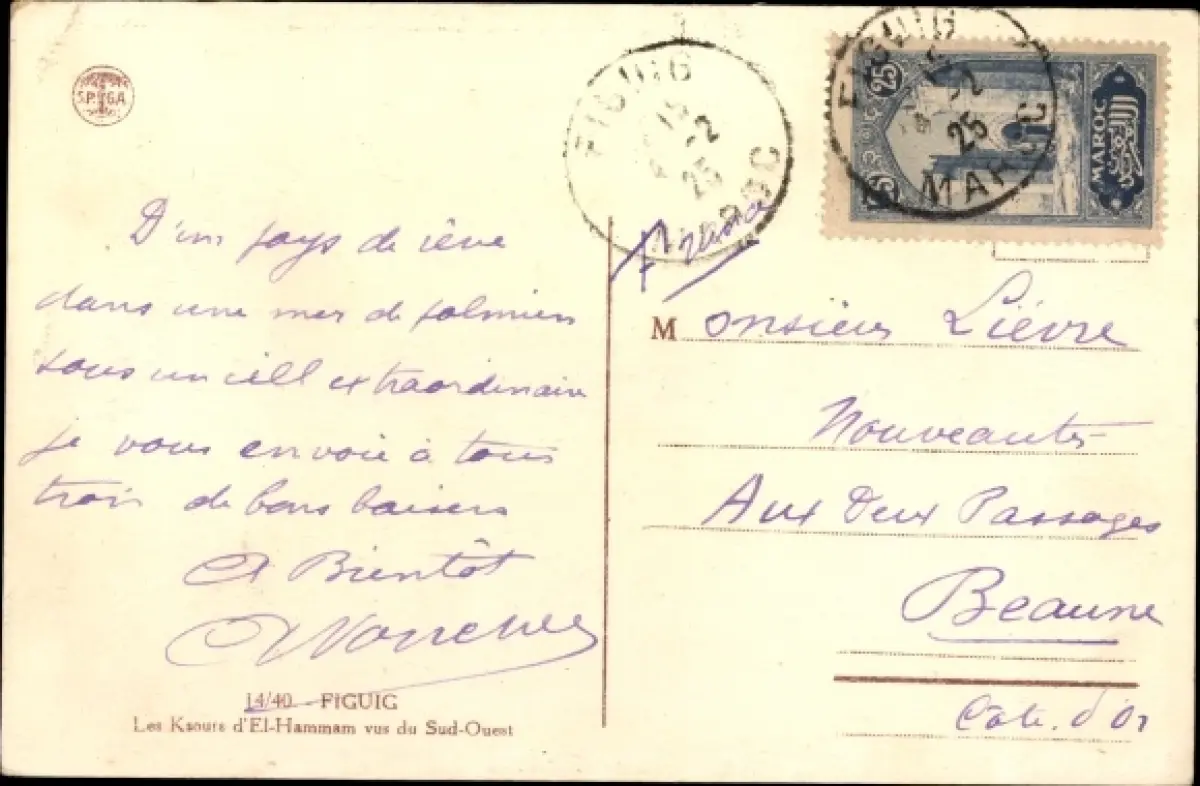 S.P.G.A.
D'un pays de rêve
dans une mer de palmiers
sous un ciell extraordinaire
je vous envoie à tous
trois de bons baisers
A Bientôt
14/40 - FIGUIG
Les Ksours d'El-Hammam vus du Sud-Ouest
FIGUIG
15 -2
25
MAROC
FIGUIG
15 -2
25
MAROC
25
25
MAROC
Monsieur Lièvre
Nouveautés
Aux Deux Passages
Beaune
Côte. d'Or